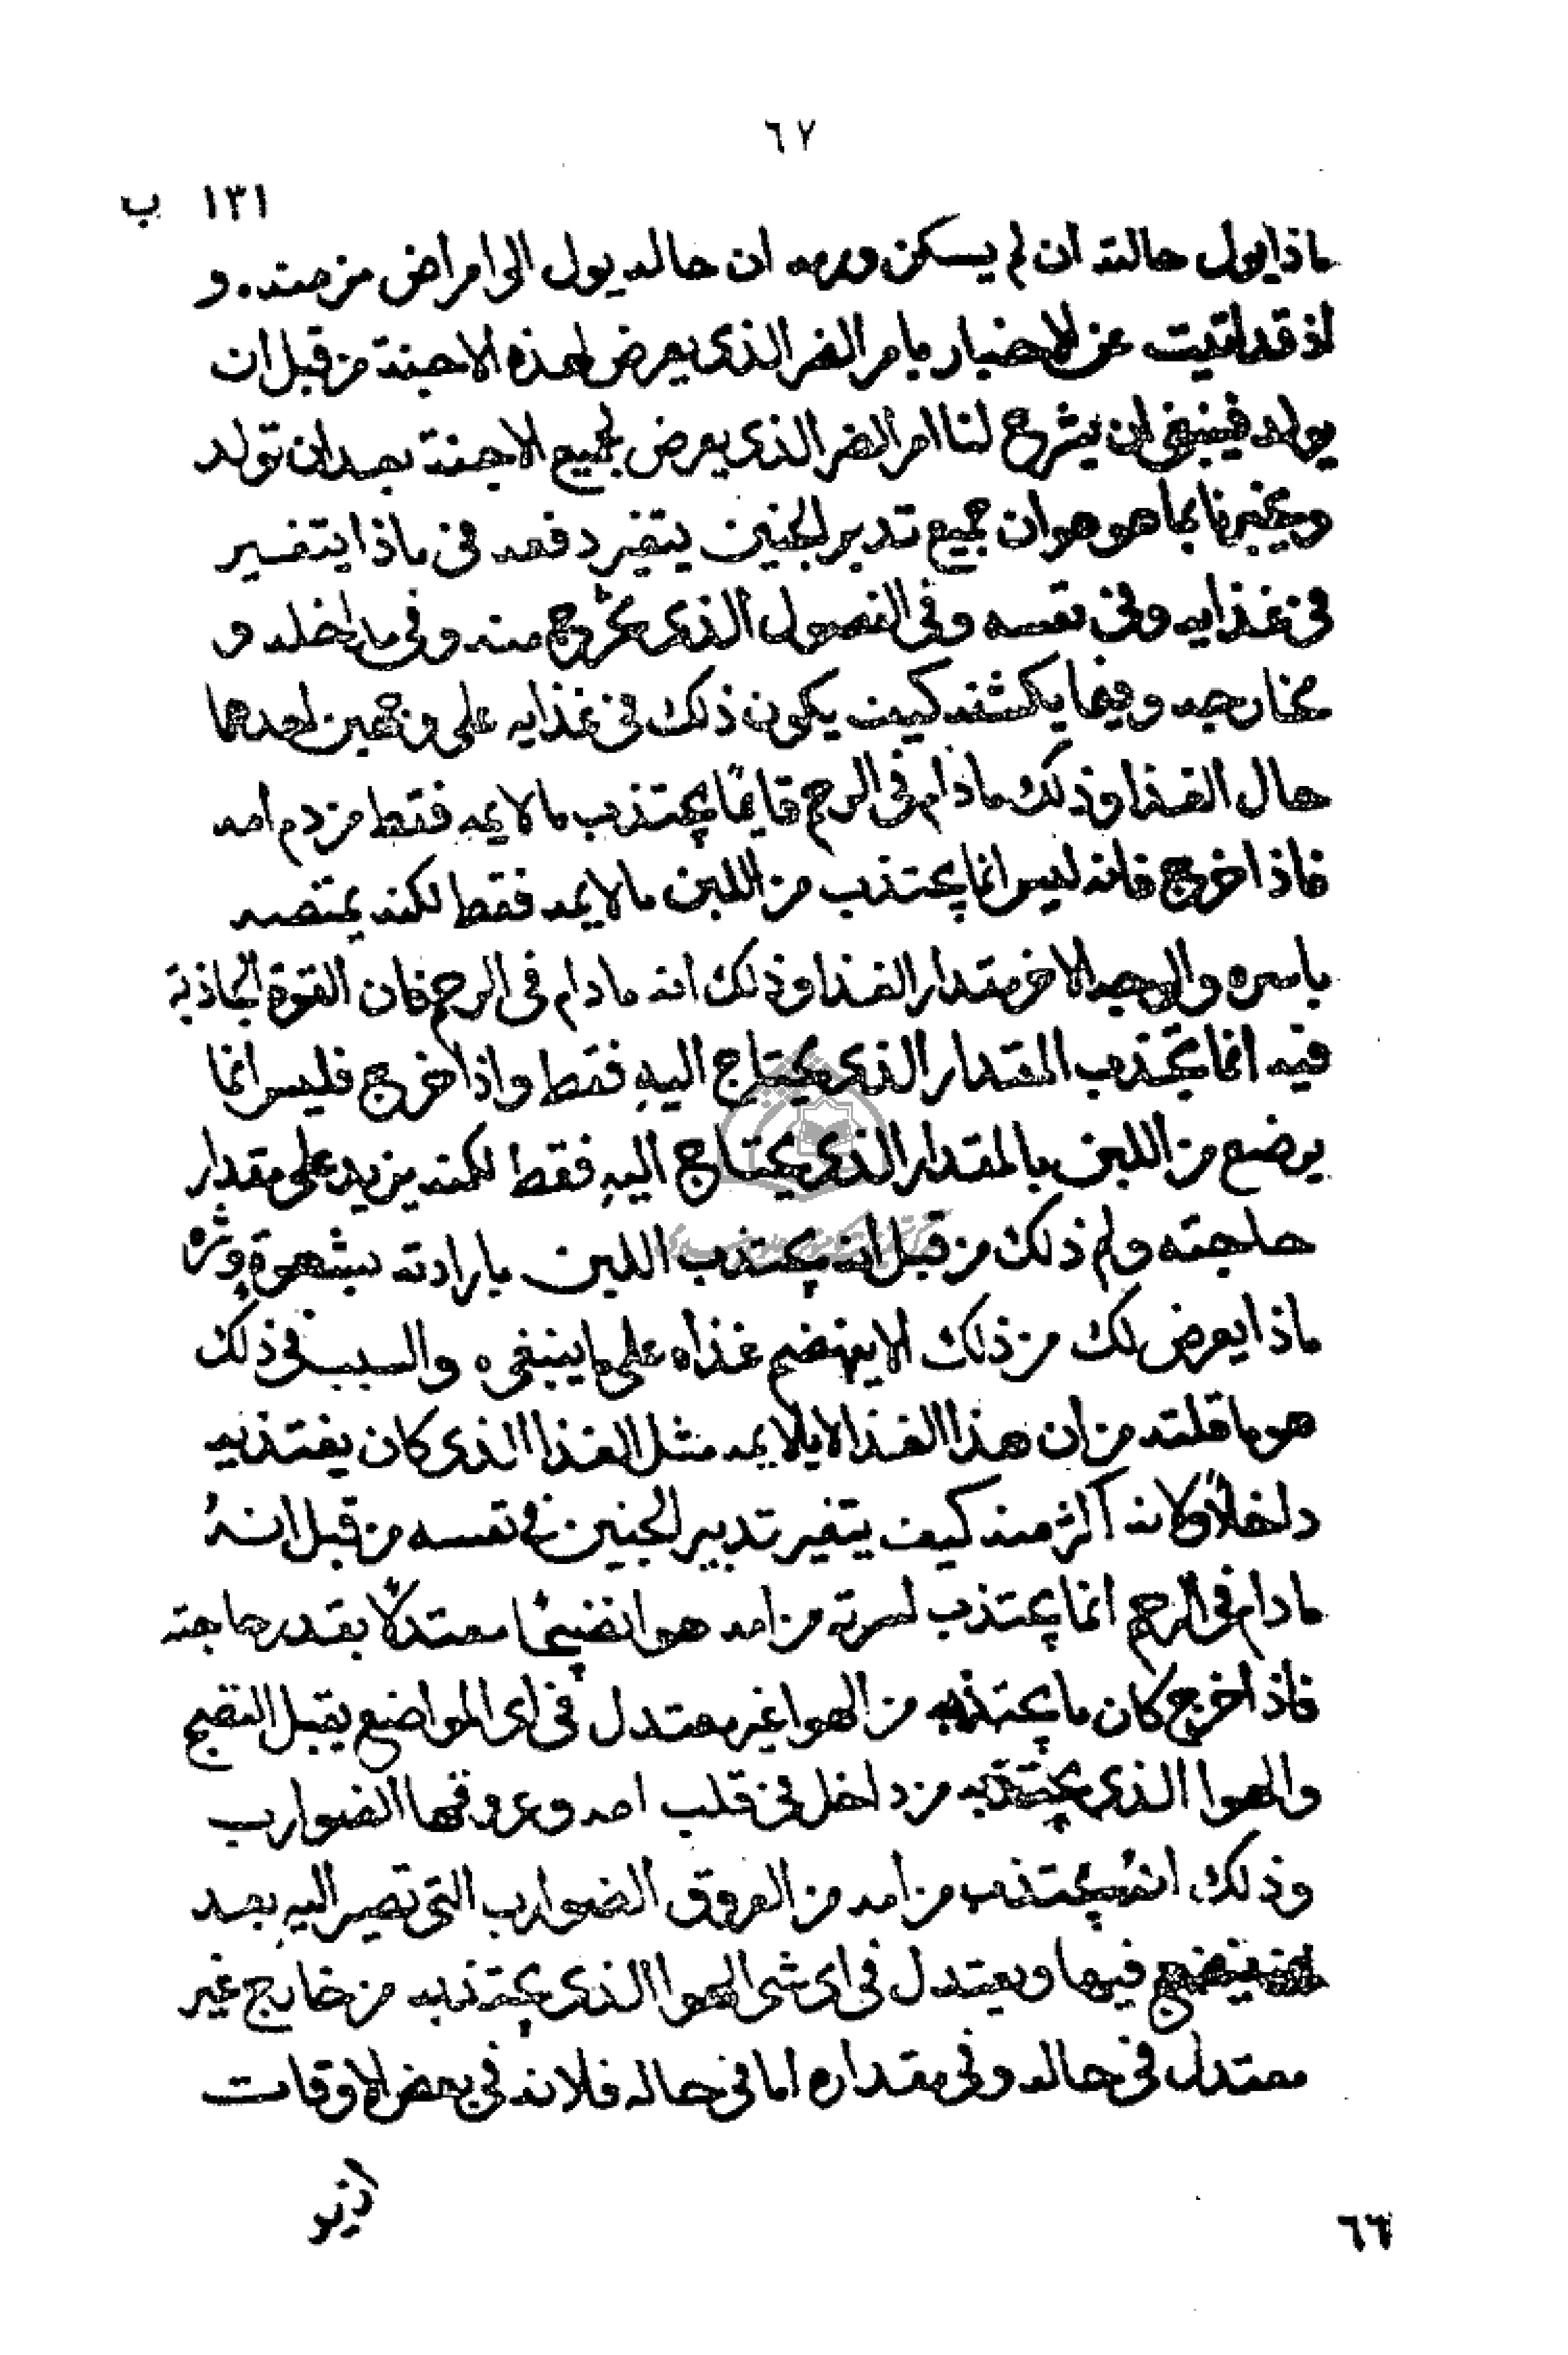 ٦٧
١٣١ ب
ماذا يول حالته ان لم يسكن ورمه ان حاله يول الى امراض مزمنه . و
اذ قد اتيت عن الاخبار بامر الضر الذى يعرض لهذه الاجنة من قبل ان
يولد فينبغى ان يشرح لنا امر الضر الذى يعرض لجميع الاجنة بعد ان تولد
ويخبرنا بما هو هو ان جميع تدبير الجنين يتغير دفعه فى ماذا يتغير
فى غذايه وفى نفسه وفى الفصول الذى يخرج منه وفى مداخله و
مخارجه وفيما يكشفه كيف يكون ذلك فى غذايه على وجهين احدهما
حال الغذا وذلك مادام فى الرحم قايمًا يجتذب مالايمه فقط من دم امه
فاذا خرج فانه ليس انما يجتذب من اللبن مالايمه فقط لكنه يمتصه
باسره والوجه الاخر مقدار الغذا وذلك انه مادام فى الرحم فان القوة الجاذبة
فيه انما تجذب المقدار الذى يحتاج اليه فقط واذا خرج فليس انما
يرضع من اللبن بالمقدار الذى يحتاج اليه فقط لكنه يزيد على مقدار
حاجته ولم ذلك من قبل انه يجتذب اللبن بارادته بشهوة وشره
ماذا يعرض لك من ذلك الا ينهضم غذاه على ما ينبغى ه والسبب فى ذلك
هو ما قلته من ان هذا الغذا لا يلايمه مثل الغذا الذى كان يغتذ به
داخلاً ولانه اكثر منه كيف يتغير تدبير الجنين فى نفسه من قبل انهُ
مادام فى الرحم انما يجتذب لسرته من امه هوا نضيجًا معتدلا بقدر حاجته
فاذا خرج كان ما يجتذبه من الهوا غير معتدل فى اى المواضع يقبل النضج
والهوا الذى يجتذبه من داخل فى قلب امه وعروقها الضوارب
وذلك انهُ يجتذب من امه من العروق الضوارب التى تصير اليه بعد
ينضج فيها ويعتدل فى اى شى الهوا الذى يجتذبه من خارج غير
معتدل فى حاله وفى مقداره اما فى حاله فلانه فى بعض الاوقات
٦٦